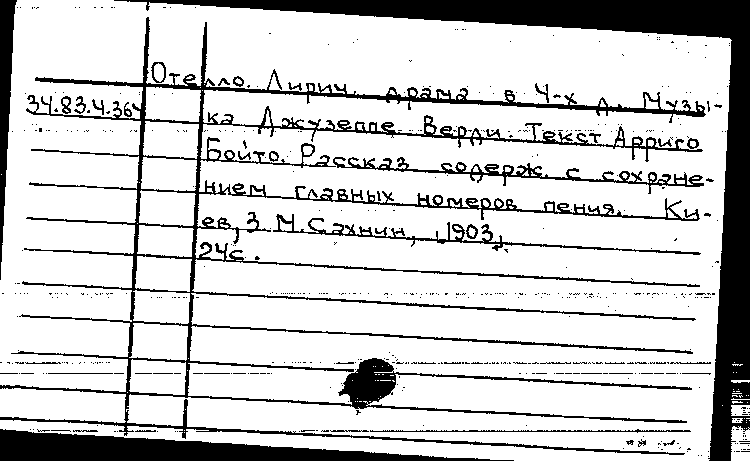 Отелло. Лирич. драма в 4-х д. Музы-
34.83.4.364
ка Джузеппе Верди. Текст Арриго
Бойто. Рассказ содерж. с сохране-
нием главных номеров пения. Ки-
ев, З.М. Сахнин, [1903]
24с.